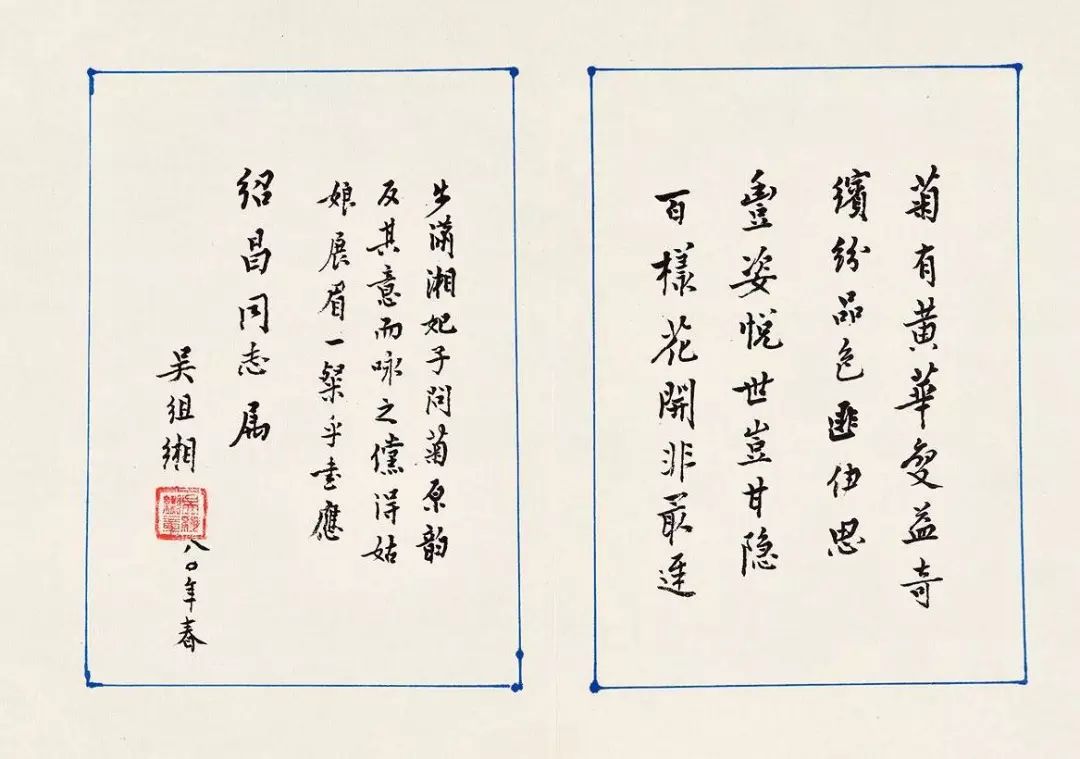 菊有黄華变益奇
繽紛品色匪伊思
豊姿悅世豈甘隐
百樣花開非最遲
步瀟湘妃子問菊原韵
反其意而咏之儻得姑
娘展眉一粲乎書應
紹昌同志属
吴組緗
八〇年春